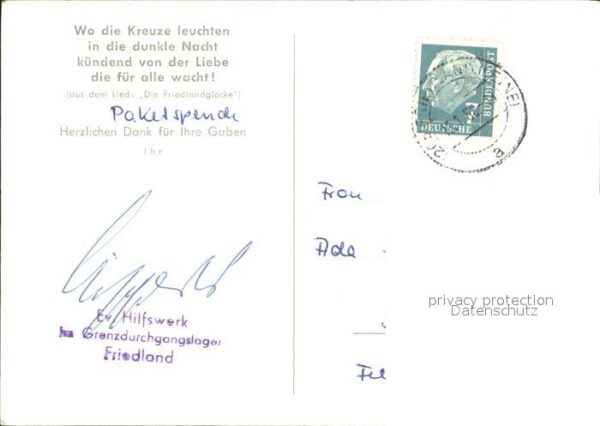 Wo die Kreuze leuchten
in die dunkle Nacht
kündend von der Liebe
die für alle wacht!
(aus dem Lied: „Die Friedlandglocke")
Paketspende
Herzlichen Dank für Ihre Gaben
Ihr
Ev. Hilfswerk
Grenzdurchgangslager
Friedland
7
DEUTSCHE
BUNDESPOST
Frau
Ada
privacy protection
Datenschutz